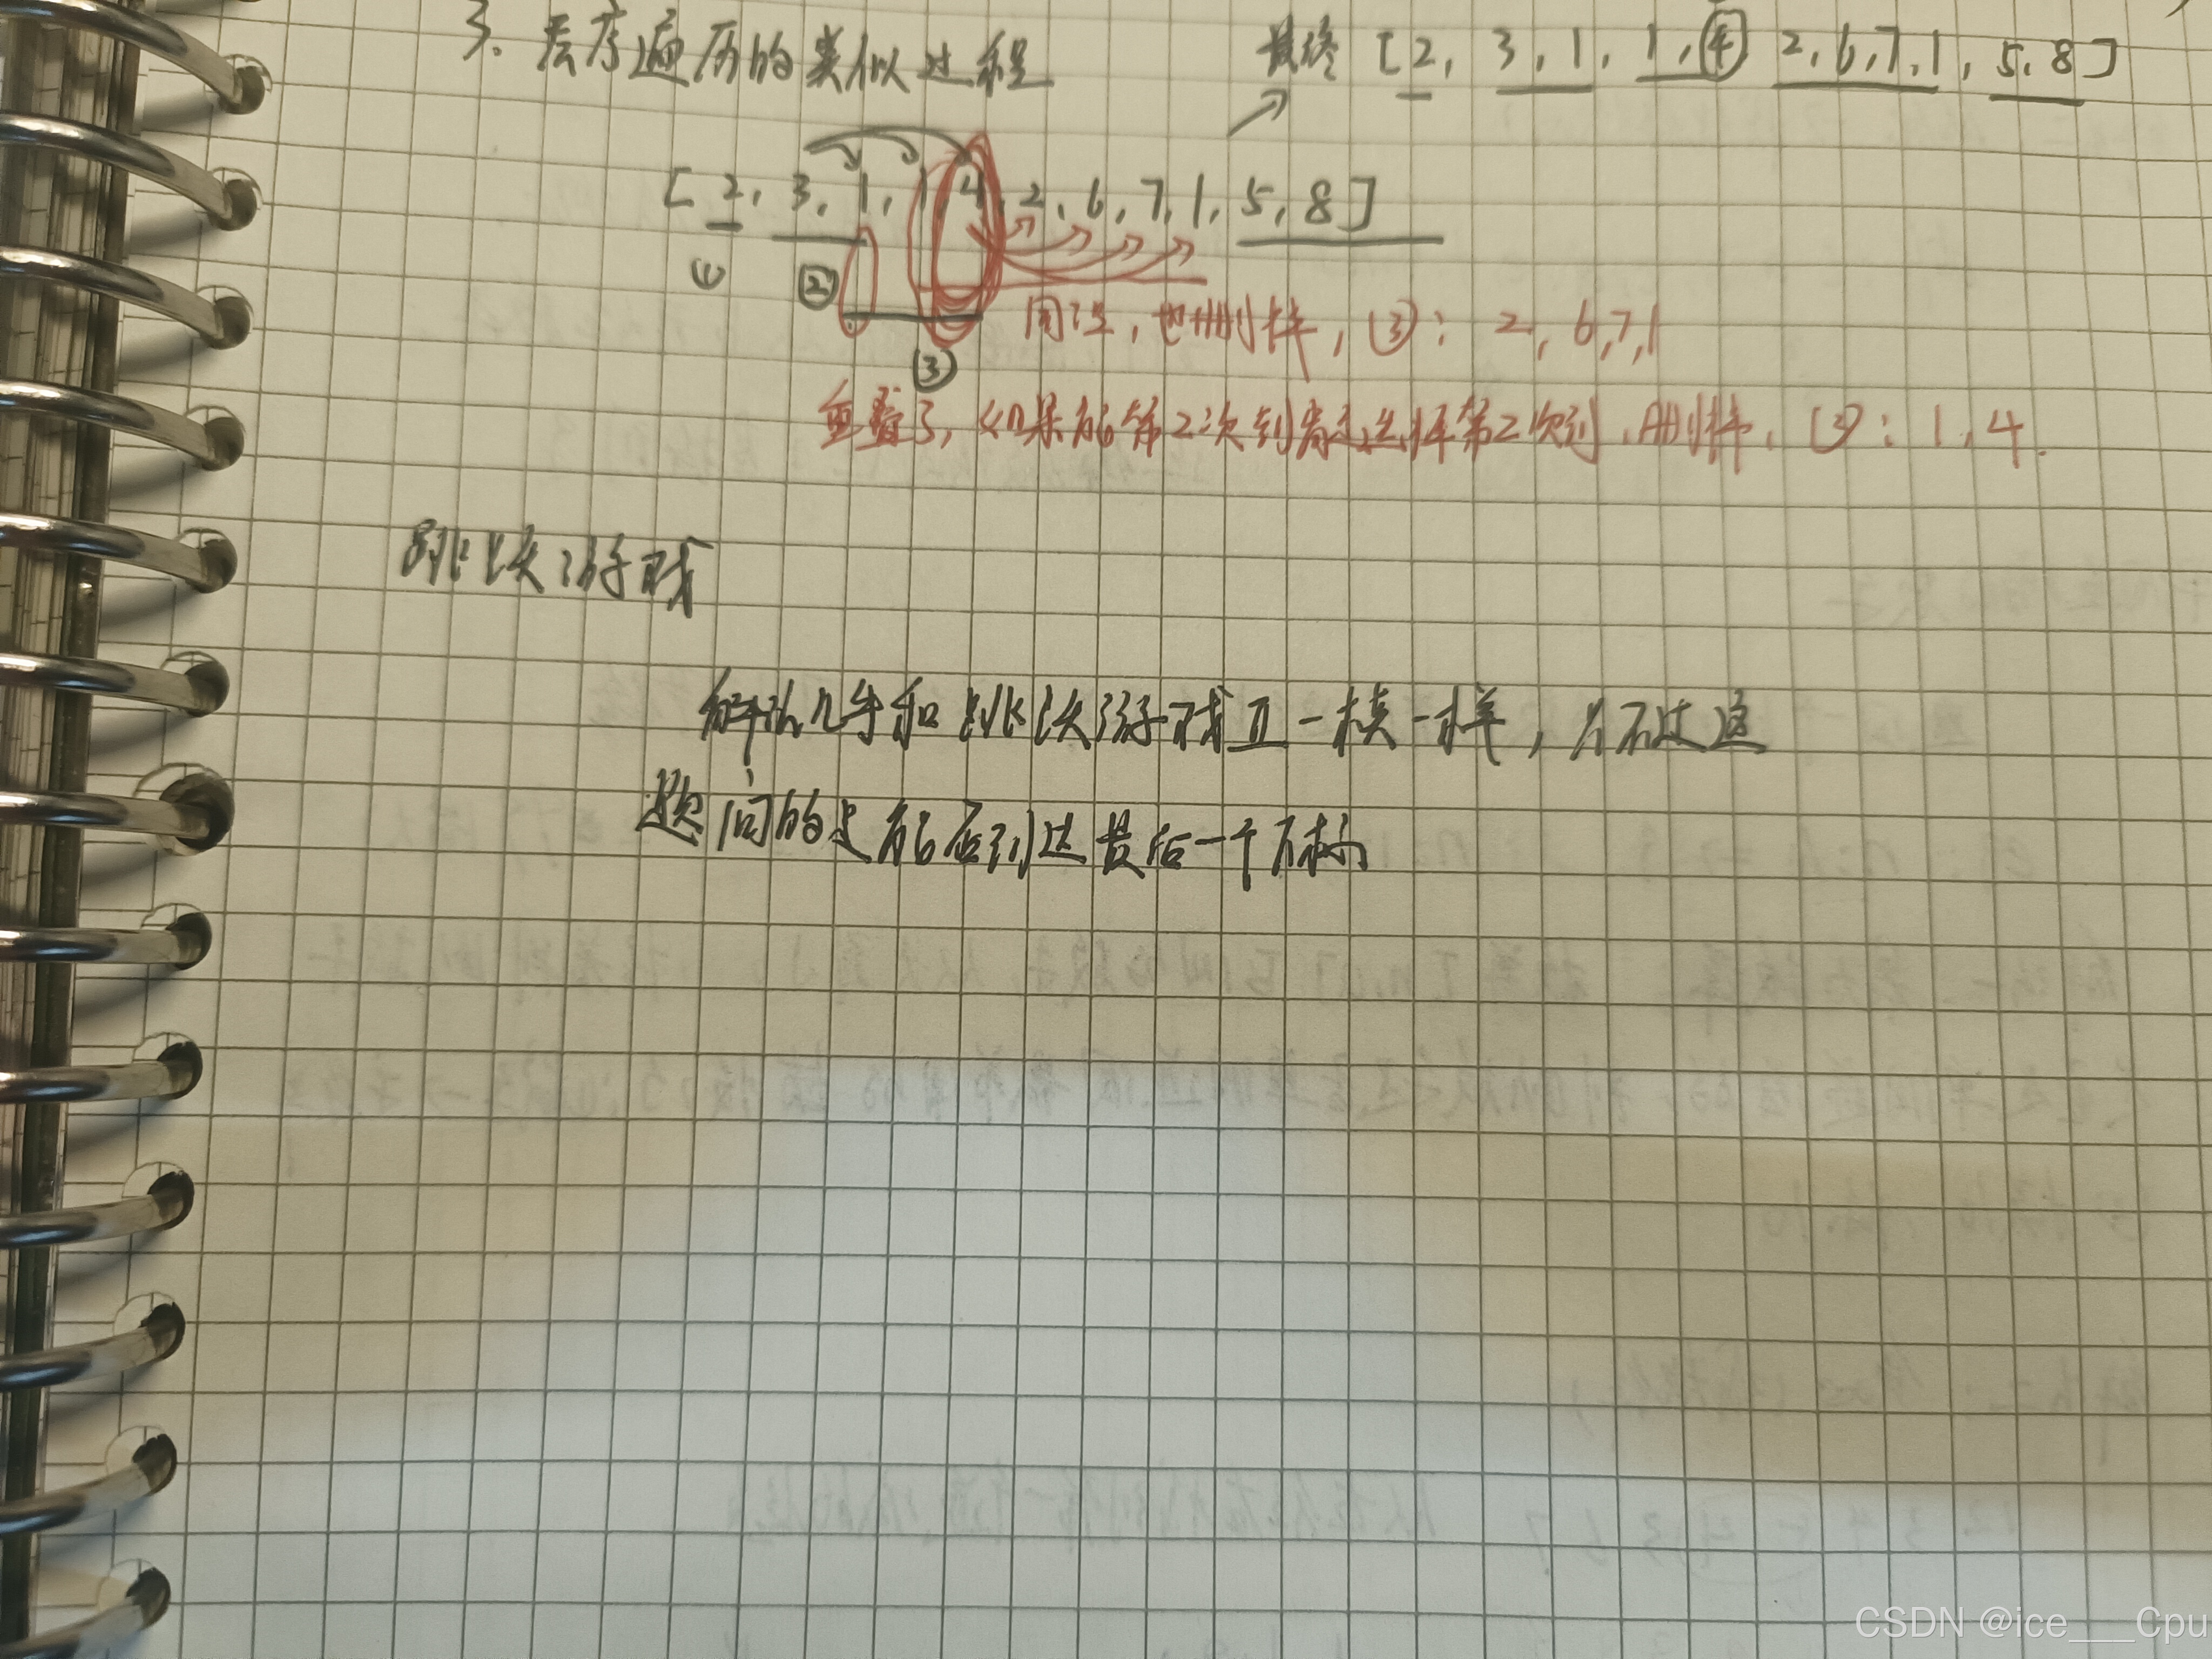 3. 层序遍历的类似过程
最终 [2, 3, 1, 1, 4 2, 6, 7, 1, 5, 8]
[2, 3, 1, 1, 4, 2, 6, 7, 1, 5, 8]
① ②
同理, 也删掉, ③: 2, 6, 7, 1
③
重叠了, 如果能第2次到肯定选择第2次到, 删掉, ③: 1, 4.
跳跃游戏
解法几乎和跳跃游戏Ⅱ一模一样, 只不过这
题问的是能否到达最后一个下标
CSDN @ice___Cpu